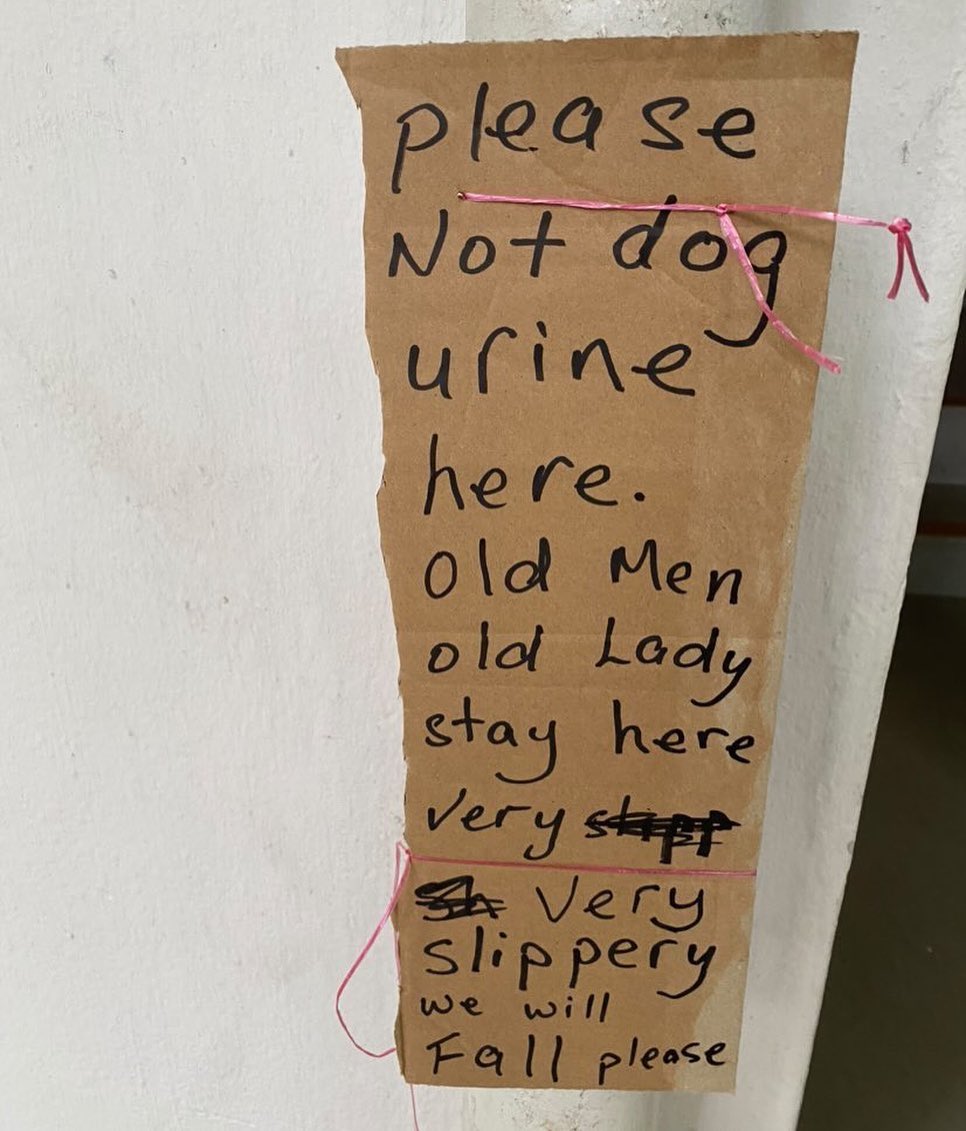 please
Not dog
urine
here.
old Men
old Lady
stay here
very
very
slippery
we will
Fall please